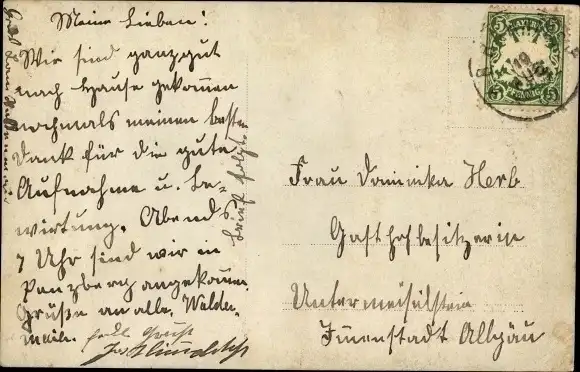 Meine Lieben!
Wir sind ganz gut
nach Hause gekommen
nochmals meinen besten
Dank für die gute
Aufnahme u. Be-
wirtung. Abends
7 Uhr sind wir in
Penzberg angekommen.
Grüße an alle. Walder-
meier.
Brief folgt.
Frau Dominika Herb
Gasthofbesitzerin
Untermeiselstein
Immenstadt Allgäu
BAYERN
5 5
PFENNIG
5 5